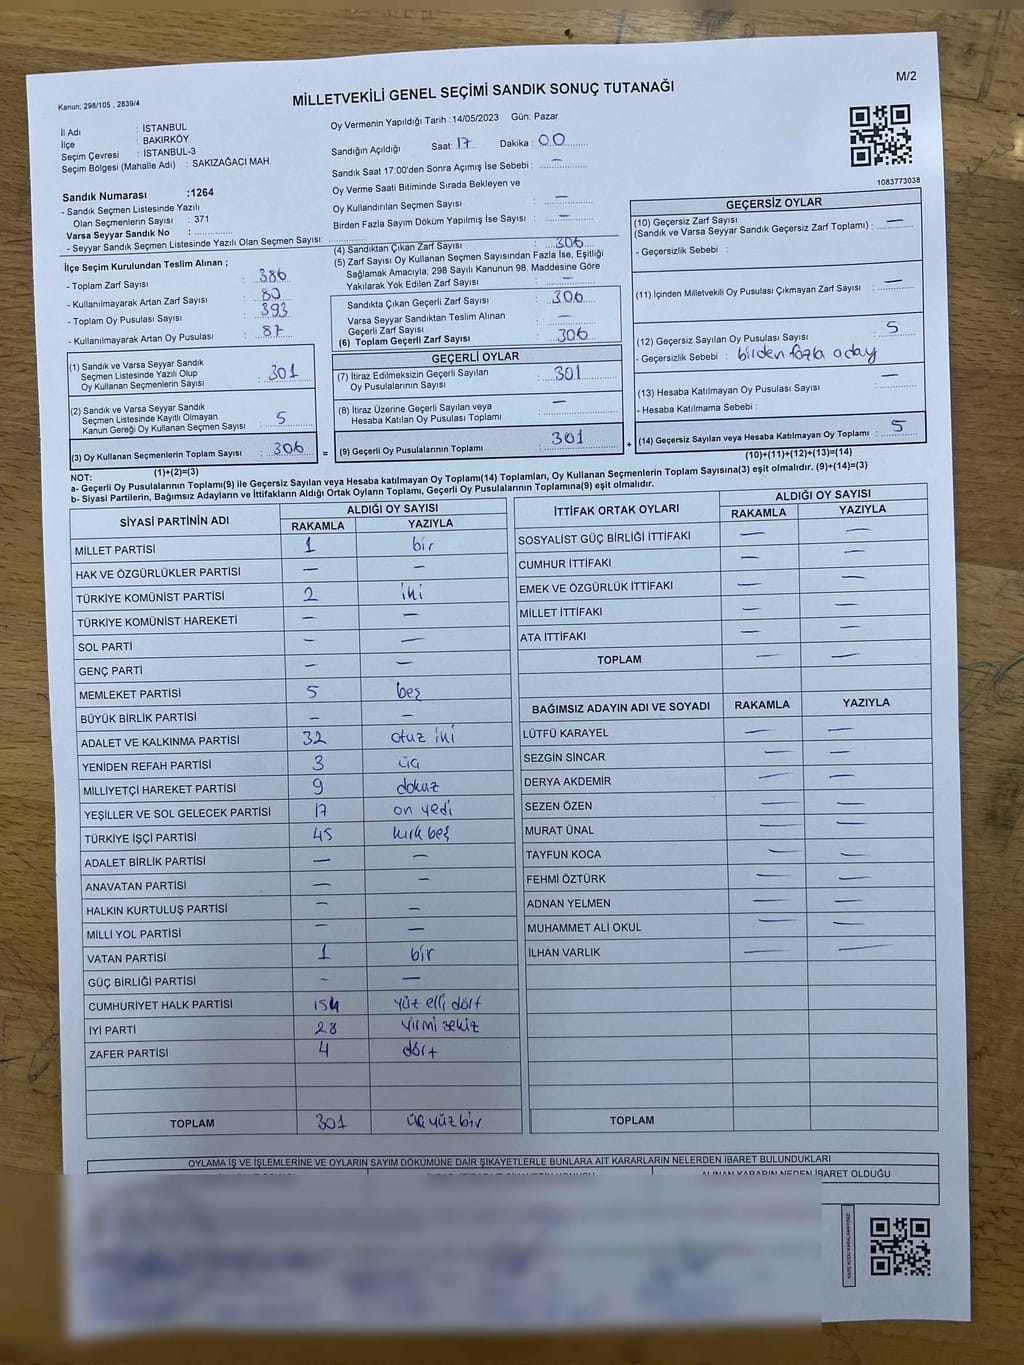 Kanun; 298/105 , 2839/4
MİLLETVEKİLİ GENEL SEÇİMİ SANDIK SONUÇ TUTANAĞI
M/2
İl Adı : İSTANBUL
İlçe : BAKIRKÖY
Seçim Çevresi : İSTANBUL-3
Seçim Bölgesi (Mahalle Adı) : SAKIZAĞACI MAH.
Oy Vermenin Yapıldığı Tarih :14/05/2023 Gün: Pazar
Sandığın Açıldığı Saat: 17 Dakika : 00
Sandık Saat 17:00'den Sonra Açımış İse Sebebi : —
Oy Verme Saati Bitiminde Sırada Bekleyen ve
Oy Kullandırılan Seçmen Sayısı : —
Birden Fazla Sayım Döküm Yapılmış İse Sayısı : —
1083773038
Sandık Numarası :1264
- Sandık Seçmen Listesinde Yazılı
Olan Seçmenlerin Sayısı : 371
Varsa Seyyar Sandık No :
- Seyyar Sandık Seçmen Listesinde Yazılı Olan Seçmen Sayısı:
İlçe Seçim Kurulundan Teslim Alınan ;
- Toplam Zarf Sayısı : 386
- Kullanılmayarak Artan Zarf Sayısı : 80
- Toplam Oy Pusulası Sayısı : 393
- Kullanılmayarak Artan Oy Pusulası : 87
(1) Sandık ve Varsa Seyyar Sandık
Seçmen Listesinde Yazılı Olup
Oy Kullanan Seçmenlerin Sayısı : 301
(2) Sandık ve Varsa Seyyar Sandık
Seçmen Listesinde Kayıtlı Olmayan
Kanun Gereği Oy Kullanan Seçmen Sayısı : 5
(3) Oy Kullanan Seçmenlerin Toplam Sayısı : 306
(1)+(2)=(3)
(4) Sandıktan Çıkan Zarf Sayısı : 306
(5) Zarf Sayısı Oy Kullanan Seçmen Sayısından Fazla İse, Eşitliği
Sağlamak Amacıyla; 298 Sayılı Kanunun 98. Maddesine Göre
Yakılarak Yok Edilen Zarf Sayısı : —
Sandıkta Çıkan Geçerli Zarf Sayısı : 306
Varsa Seyyar Sandıktan Teslim Alınan
Geçerli Zarf Sayısı : —
(6) Toplam Geçerli Zarf Sayısı : 306
GEÇERLİ OYLAR
(7) İtiraz Edilmeksizin Geçerli Sayılan
Oy Pusulalarının Sayısı : 301
(8) İtiraz Üzerine Geçerli Sayılan veya
Hesaba Katılan Oy Pusulası Toplamı : —
= (9) Geçerli Oy Pusulalarının Toplamı : 301
GEÇERSİZ OYLAR
(10) Geçersiz Zarf Sayısı
(Sandık ve Varsa Seyyar Sandık Geçersiz Zarf Toplamı) : —
- Geçersizlik Sebebi :
(11) İçinden Milletvekili Oy Pusulası Çıkmayan Zarf Sayısı : —
(12) Geçersiz Sayılan Oy Pusulası Sayısı : 5
- Geçersizlik Sebebi : birden fazla aday
(13) Hesaba Katılmayan Oy Pusulası Sayısı : —
- Hesaba Katılmama Sebebi :
+ (14) Geçersiz Sayılan veya Hesaba Katılmayan Oy Toplamı : 5
(10)+(11)+(12)+(13)=(14)
NOT:
a- Geçerli Oy Pusulalarının Toplamı(9) ile Geçersiz Sayılan veya Hesaba katılmayan Oy Toplamı(14) Toplamları, Oy Kullanan Seçmenlerin Toplam Sayısına(3) eşit olmalıdır. (9)+(14)=(3)
b- Siyasi Partilerin, Bağımsız Adayların ve İttifakların Aldığı Ortak Oyların Toplamı, Geçerli Oy Pusulalarının Toplamına(9) eşit olmalıdır.
SİYASİ PARTİNİN ADI ALDIĞI OY SAYISI
RAKAMLA YAZIYLA
MİLLET PARTİSİ 1 bir
HAK VE ÖZGÜRLÜKLER PARTİSİ — —
TÜRKİYE KOMÜNİST PARTİSİ 2 iki
TÜRKİYE KOMÜNİST HAREKETİ — —
SOL PARTİ — —
GENÇ PARTİ — —
MEMLEKET PARTİSİ 5 beş
BÜYÜK BİRLİK PARTİSİ — —
ADALET VE KALKINMA PARTİSİ 32 otuz iki
YENİDEN REFAH PARTİSİ 3 üç
MİLLİYETÇİ HAREKET PARTİSİ 9 dokuz
YEŞİLLER VE SOL GELECEK PARTİSİ 17 on yedi
TÜRKİYE İŞÇİ PARTİSİ 45 kırk beş
ADALET BİRLİK PARTİSİ — —
ANAVATAN PARTİSİ — —
HALKIN KURTULUŞ PARTİSİ — —
MİLLİ YOL PARTİSİ — —
VATAN PARTİSİ 1 bir
GÜÇ BİRLİĞİ PARTİSİ — —
CUMHURİYET HALK PARTİSİ 154 yüz elli dört
İYİ PARTİ 28 yirmi sekiz
ZAFER PARTİSİ 4 dört
TOPLAM 301 üç yüz bir
İTTİFAK ORTAK OYLARI ALDIĞI OY SAYISI
RAKAMLA YAZIYLA
SOSYALİST GÜÇ BİRLİĞİ İTTİFAKI — —
CUMHUR İTTİFAKI — —
EMEK VE ÖZGÜRLÜK İTTİFAKI — —
MİLLET İTTİFAKI — —
ATA İTTİFAKI — —
TOPLAM — —
BAĞIMSIZ ADAYIN ADI VE SOYADI RAKAMLA YAZIYLA
LÜTFÜ KARAYEL — —
SEZGİN SİNCAR — —
DERYA AKDEMİR — —
SEZEN ÖZEN — —
MURAT ÜNAL — —
TAYFUN KOCA — —
FEHMİ ÖZTÜRK — —
ADNAN YELMEN — —
MUHAMMET ALİ OKUL — —
İLHAN VARLIK — —
TOPLAM
OYLAMA İŞ VE İŞLEMLERİNE VE OYLARIN SAYIM DÖKÜMÜNE DAİR ŞİKAYETLERLE BUNLARA AİT KARARLARIN NELERDEN İBARET BULUNDUKLARI
ALINAN KARARIN NEDEN İBARET OLDUĞU